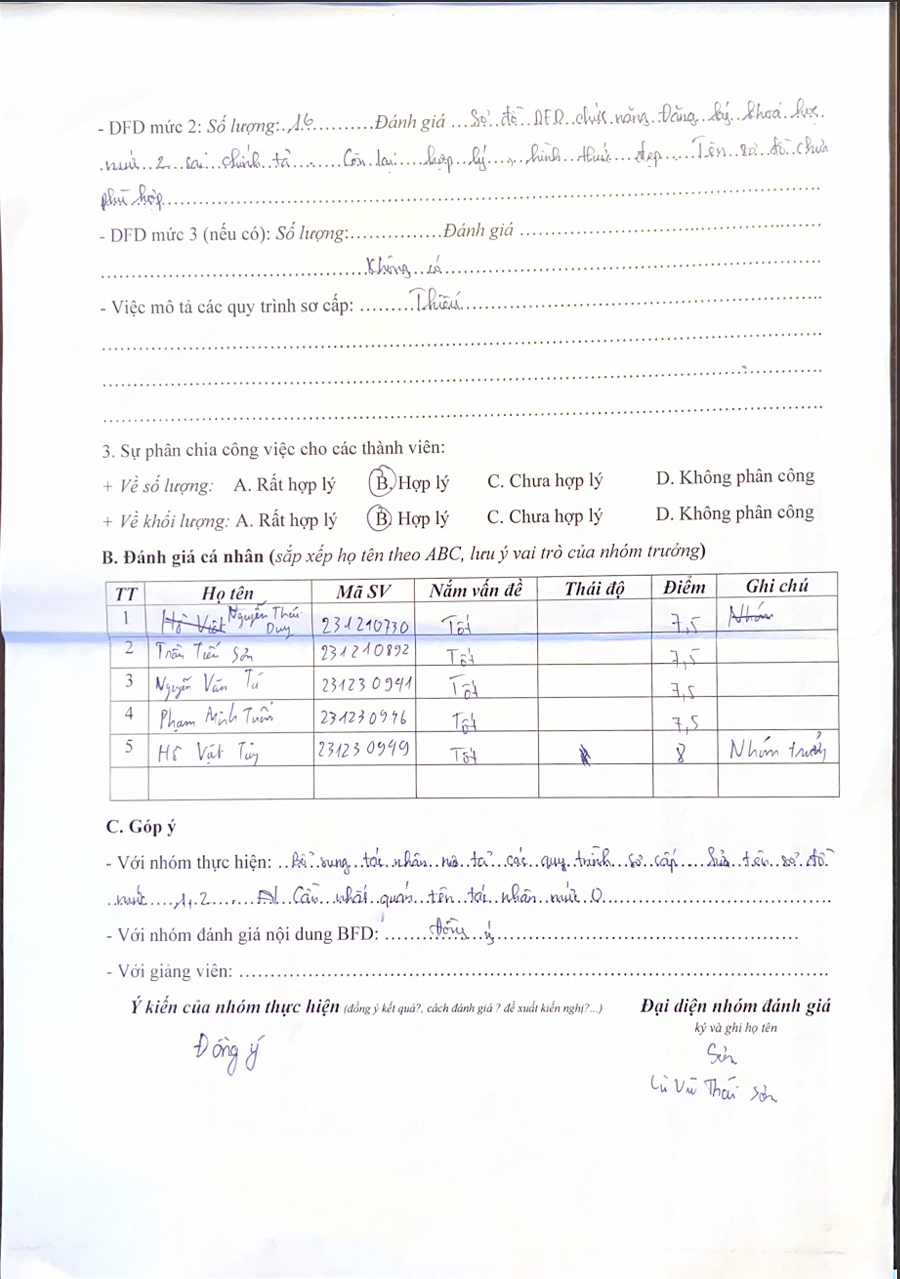 - DFD mức 2: Số lượng: 16 Đánh giá Sơ đồ DFD chức năng Đăng ký khoá học
mức 2 sai chính tả Còn lại hợp lý, hình thức đẹp Tên sơ đồ chưa
phù hợp
- DFD mức 3 (nếu có): Số lượng: Đánh giá
Không có
- Việc mô tả các quy trình sơ cấp: Thiếu
3. Sự phân chia công việc cho các thành viên:
+ Về số lượng: A. Rất hợp lý B. Hợp lý C. Chưa hợp lý D. Không phân công
+ Về khối lượng: A. Rất hợp lý B. Hợp lý C. Chưa hợp lý D. Không phân công
B. Đánh giá cá nhân (sắp xếp họ tên theo ABC, lưu ý vai trò của nhóm trưởng)
TT Họ tên Mã SV Nắm vấn đề Thái độ Điểm Ghi chú
1 Hồ Việt Nguyễn Thái Duy 231210730 Tốt 7,5 Nhóm
2 Trần Tiến Sơn 231210892 Tốt 7,5
3 Nguyễn Văn Tú 231230941 Tốt 7,5
4 Phạm Minh Tuấn 231230946 Tốt 7,5
5 Hồ Việt 231230949 Tốt 8 Nhóm trưởng
C. Góp ý
- Với nhóm thực hiện: Bổ sung tác nhân mô tả các quy trình sơ cấp Sửa tên sơ đồ
mức 1, 2 Cần nhất quán tên tác nhân mức 0
- Với nhóm đánh giá nội dung BFD: Đồng ý
- Với giảng viên:
Ý kiến của nhóm thực hiện (đồng ý kết quả?, cách đánh giá ? đề xuất kiến nghị?...) Đại diện nhóm đánh giá
ký và ghi họ tên
Đồng ý
Sơn
Vũ Thái Sơn